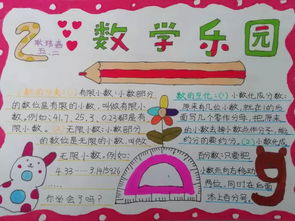 数学乐园
五、二
数的分类:(1)有限小数:小数部分
的数位是有限的小数,叫做有限小
数。例如:41.7、25.3、0.23都是有
限小数。
的数位是无限的小数,叫做
无限小数。例如:
4.33…… 3.1415926
你学会了吗?
数的互化:(1)小数化成分数:
原来有几位小数,就在1的后
面写几个零作分母,把原来
的小数去掉小数点作分子,能
约分的要约分。(2)小数化成
百分数:只要把
小数点向右移动
两位,同时在后面
添上百分号。